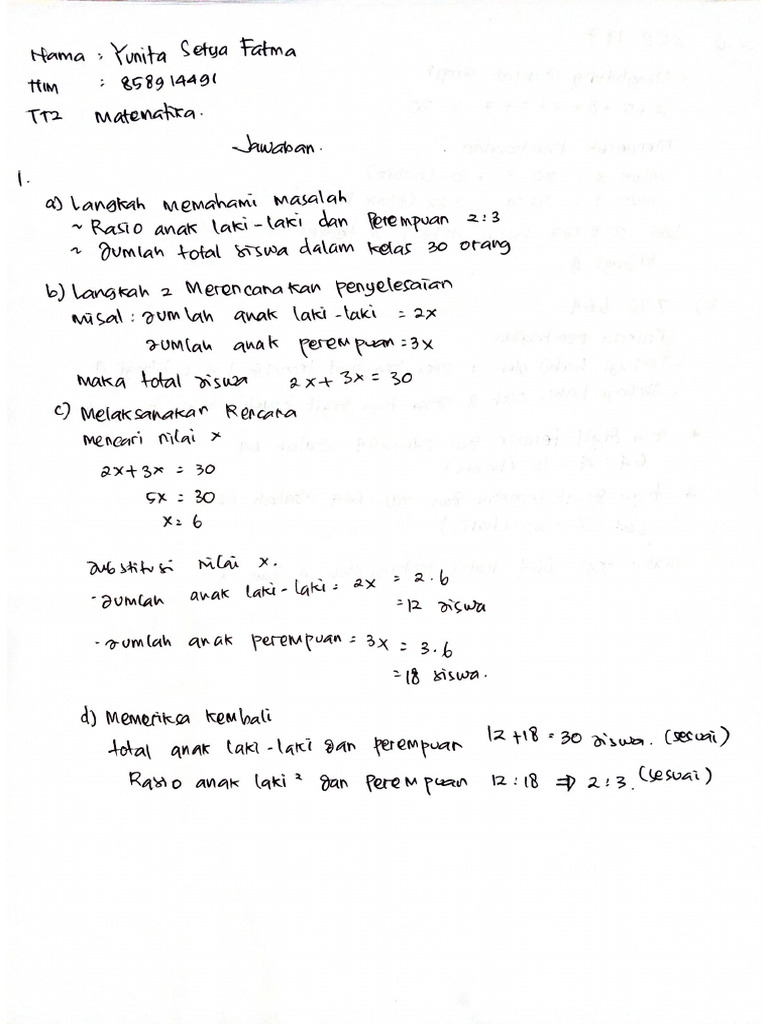 Nama : Yunita Setya Fatma
NIM : 858914491
TT2 Matematika.
Jawaban.
1.
a) Langkah Memahami Masalah
~ Rasio anak laki-laki dan Perempuan 2:3
~ Jumlah total siswa dalam kelas 30 orang
b) Langkah 2 Merencanakan penyelesaian
Misal : Jumlah anak laki-laki = 2x
Jumlah anak perempuan = 3x
maka total siswa 2x + 3x = 30
c) Melaksanakan Rencana
mencari nilai x
2x + 3x = 30
5x = 30
x = 6
substitusi nilai x.
- Jumlah anak laki-laki = 2x = 2.6
= 12 siswa
- Jumlah anak perempuan = 3x = 3.6
= 18 siswa.
d) Memeriksa kembali
total anak laki-laki dan perempuan 12 + 18 = 30 siswa. (sesuai)
Rasio anak laki² dan Perempuan 12 : 18 ⇒ 2 : 3. (sesuai)